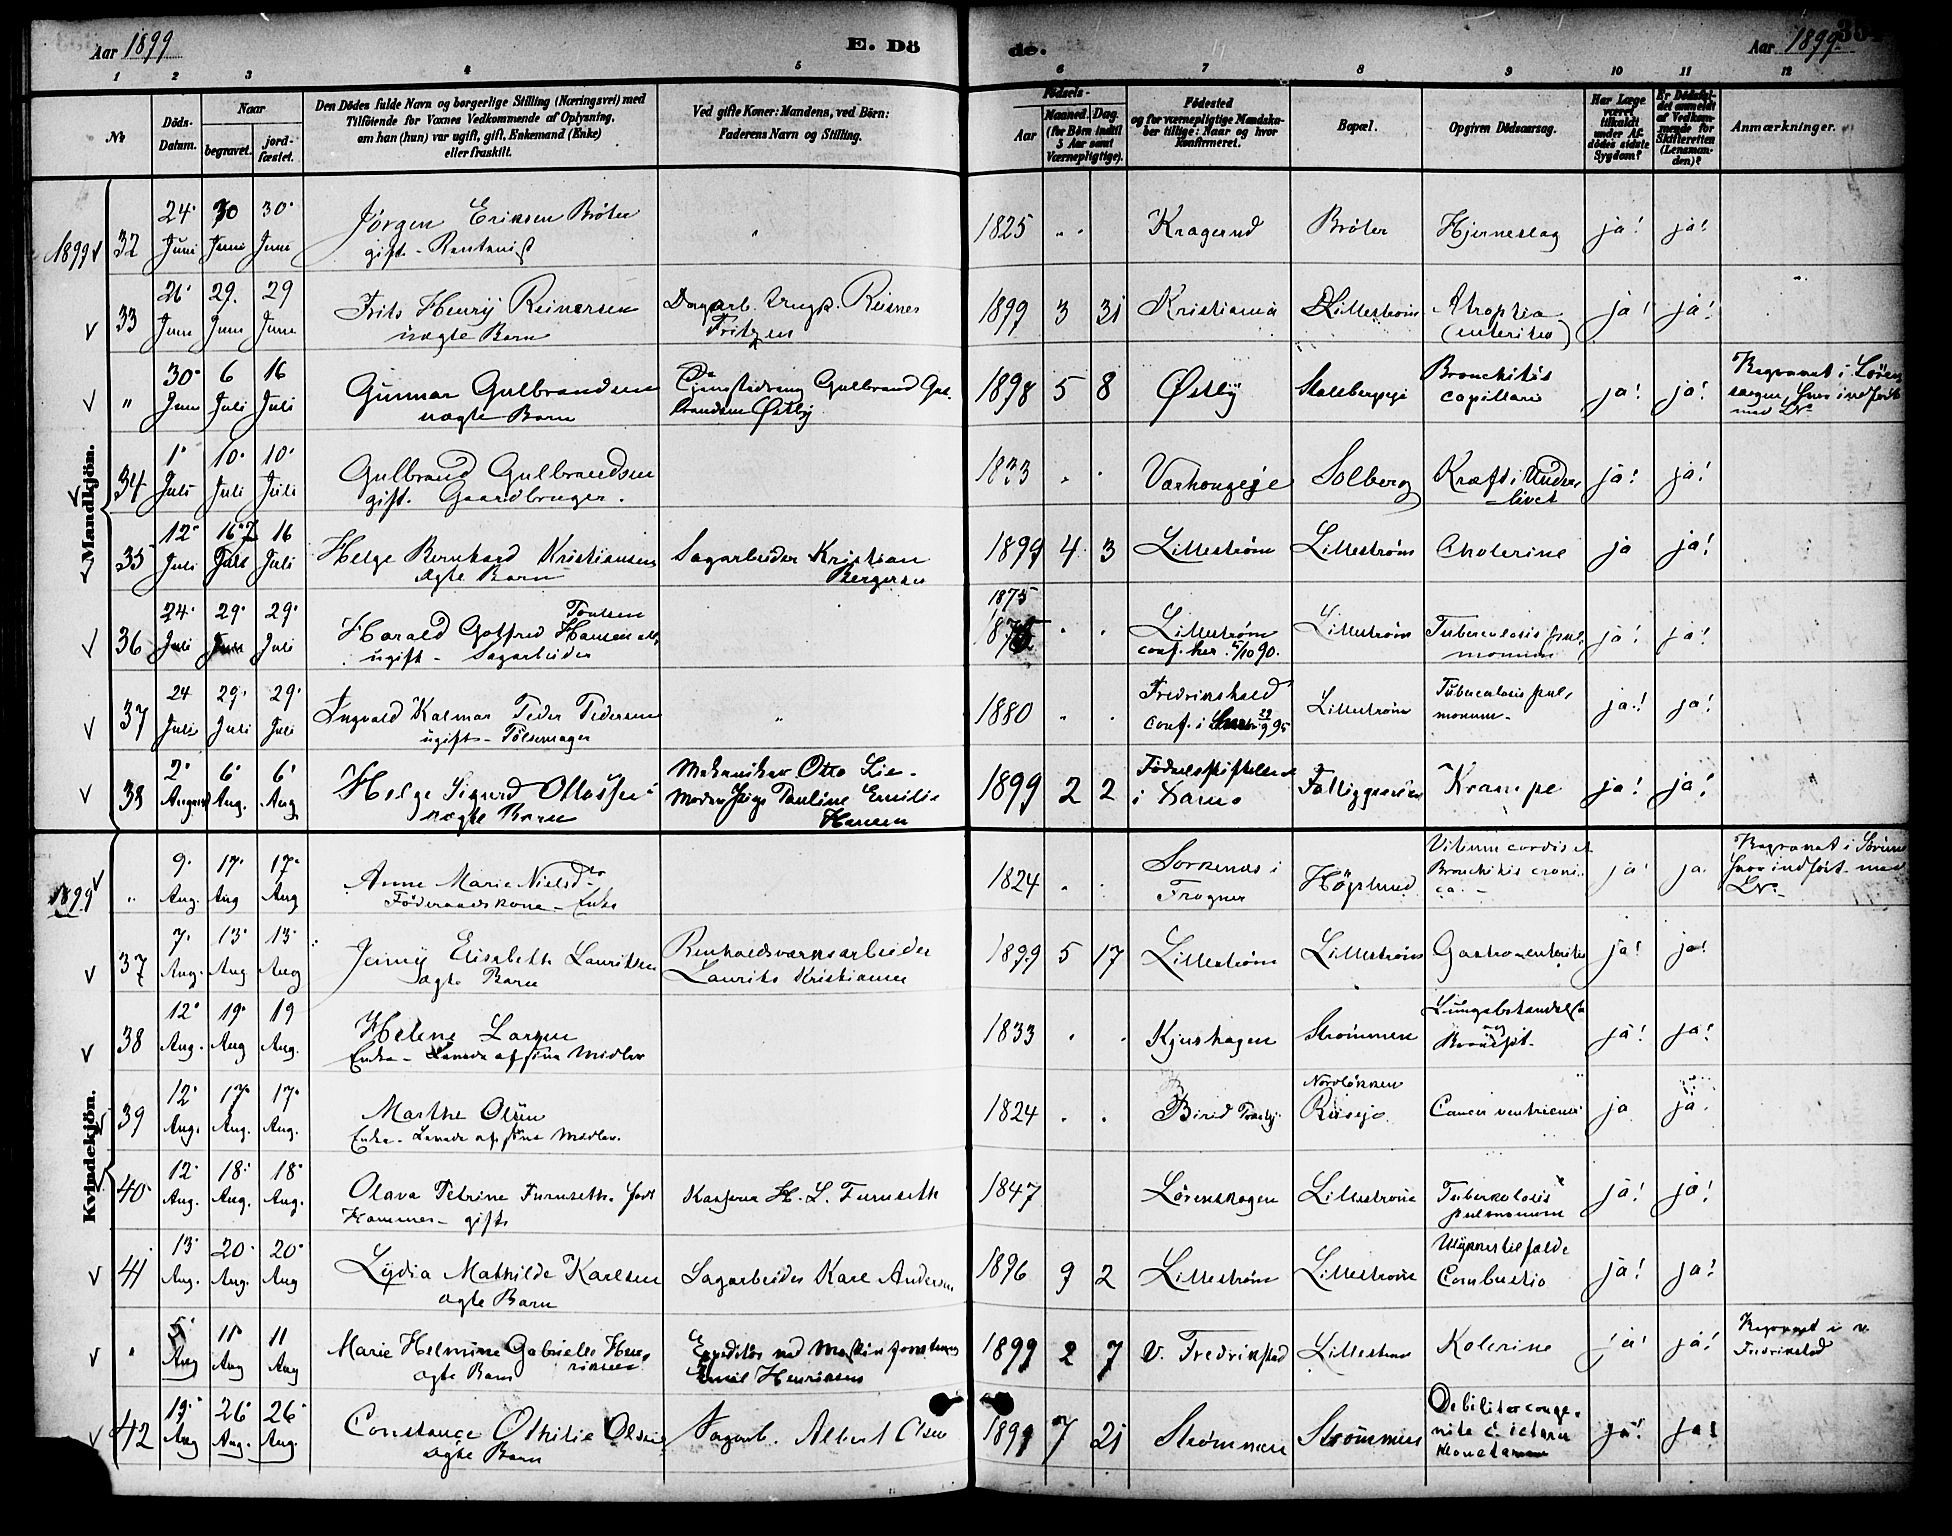 Aar 1899 E. Dö de. Aar 1899
1 2 3 4 5 6 7 8 9 10 11 12
No
Döds-Datum.
Naar
begravet. jordfæstet.
Den Dödes fulde Navn og borgerlige Stilling (Næringsvei) med
Tilföiende for Voxnes Vedkommende af Oplysning,
om han (hun) var ugift, gift, Enkemand (Enke)
eller fraskilt.
Ved gifte Koner: Mandens, ved Börn:
Faderens Navn og Stilling.
Födsels-
Aar Maaned. Dag.
(for Börn indtil 5 Aar samt Værnepligtige).
Födested
og for værnepligtige Mandskaber tillige: Naar og hvor konfirmeret.
Bopæl.
Opgiven Dödsaarsag.
Har Læge været tilkaldt under Afdödes sidste Sygdom?
Er Dödsfaldet anmeldt af Vedkommende for Skifteretten (Lensmanden)?
Anmærkninger.
Mandkjön.
1899 32 24. Juni 30 Juni 30. Juni Jörgen Eriksen Bröter 1825 Kragerud Bröter Hjerneslag ja! ja!
gift - Rentenist
33 26. Juni 29. Juni 29 Juni Frits Henry Reinersen Dagarb. Ungk. Reines 1899 3 31 Kristiania Lilleström Atrophia ja! ja!
uægte Barn Fritzen (enteritis)
" 30. Juni 6 Juli 16 Juli Gunnar Gulbrandsen Tjenestedreng Gulbrand Gul- 1898 5 8 Østby Stalsbergeje Bronchitis ja! ja! Begravet i Lören-
uægte Barn brandsen Østby capillaris
34 1. Juli 10. Juli 10. Juli Gulbrand Gulbrandsen 1833 Solberg Kræft i Under- ja! ja!
gift. Gaardbruger. livet
35 12. Juli 16 Juli 16 Juli Helge Bernhard Kristiansen Sagarbeider Kristian 1899 4 3 Lilleström Lilleström Cholerine ja ja!
ægte Barn Bergersen
36 24. Juli 29. 29. Juli Harald Gotfred Hansen 1875 Lilleström Lilleström Tuberculosis pul- ja! ja!
ugift - Sagarbeider conf. her 5/10 90. monum
37 24 Juli 29. Juli 29. Juli Ingvald Kalmar Peder Pedersen " 1880 Fredrikshald Lilleström Tuberculosis pul- ja! ja!
ugift - Pölsemager conf. i 29/9 95 monum
38 2. August 6. Aug. 6. Aug Helge Sigurd Ottosen Mekaniker Otto Lie - 1899 2 2 Födselsstiftelsen Fattiggaarden Krampe ja! ja!
uægte Barn Moder Pige Pauline Emilie
Hansen
Kvindekjön.
1899 " 9. Aug. 17. Aug 17. Aug Anne Marie Nielsdtr 1824 Sorknæs i Höglund Vitium cordis et ja! ja. Begravet i Sörum
Föderaadskone - Enke Frogner Bronchitis croni- hvor indfört med
ca. - LNo
37 7. Aug. 13. Aug 13. Aug Jenny Elisabeth Lauritsen Renholdsværksarbeider 1899 5 17 Lilleström Lilleström Gastroenteritis ja! ja!
ægte Barn Laurits Kristiansen
38 12. Aug. 19. Aug 19 Aug. Helene Larsen 1833 Strömmen Lungebetændelse ja! ja!
Enke - Levede af sine Midler og
39 12. Aug. 17. Aug. 17. Aug. Marthe Olsen 1824 Biri Nordlökken Cancer ventriculi ja ja.
Enke - Levede af sine Midler.
40 12. Aug. 18. Aug. 18. Aug. Olava Petrine Furuseth födt Kasserer H. L. Furuseth 1847 Lörenskogen Lilleström Tuberkulosis ja! ja!
Hammer - gift pulmonum
41 13. Aug. 20. Aug. 20. Aug Lydia Mathilde Karlsen Sagarbeider Karl Andersen 1896 9 2 Lilleström Lilleström Ulykkestilfælde ja! ja!
ægte Barn Combustio
" 5. Aug 11. Aug 11 Aug Marie Helmine Gabrielle Hen- Expeditör ved Maskinforretning 1899 2 7 V. Fredrikstad Lilleström Kolerine ja! ja! Begravet i V.
riksen ægte Barn Emil Henriksen Fredrikstad
42 19. Aug 26. Aug. 26. Aug. Constance Othilie Olsen Sagarb. Albert Olsen 1899 7 21 Strömmen Strömmen Debilitas conge- ja! ja!
ægte Barn nita c. icterus
neonatorum